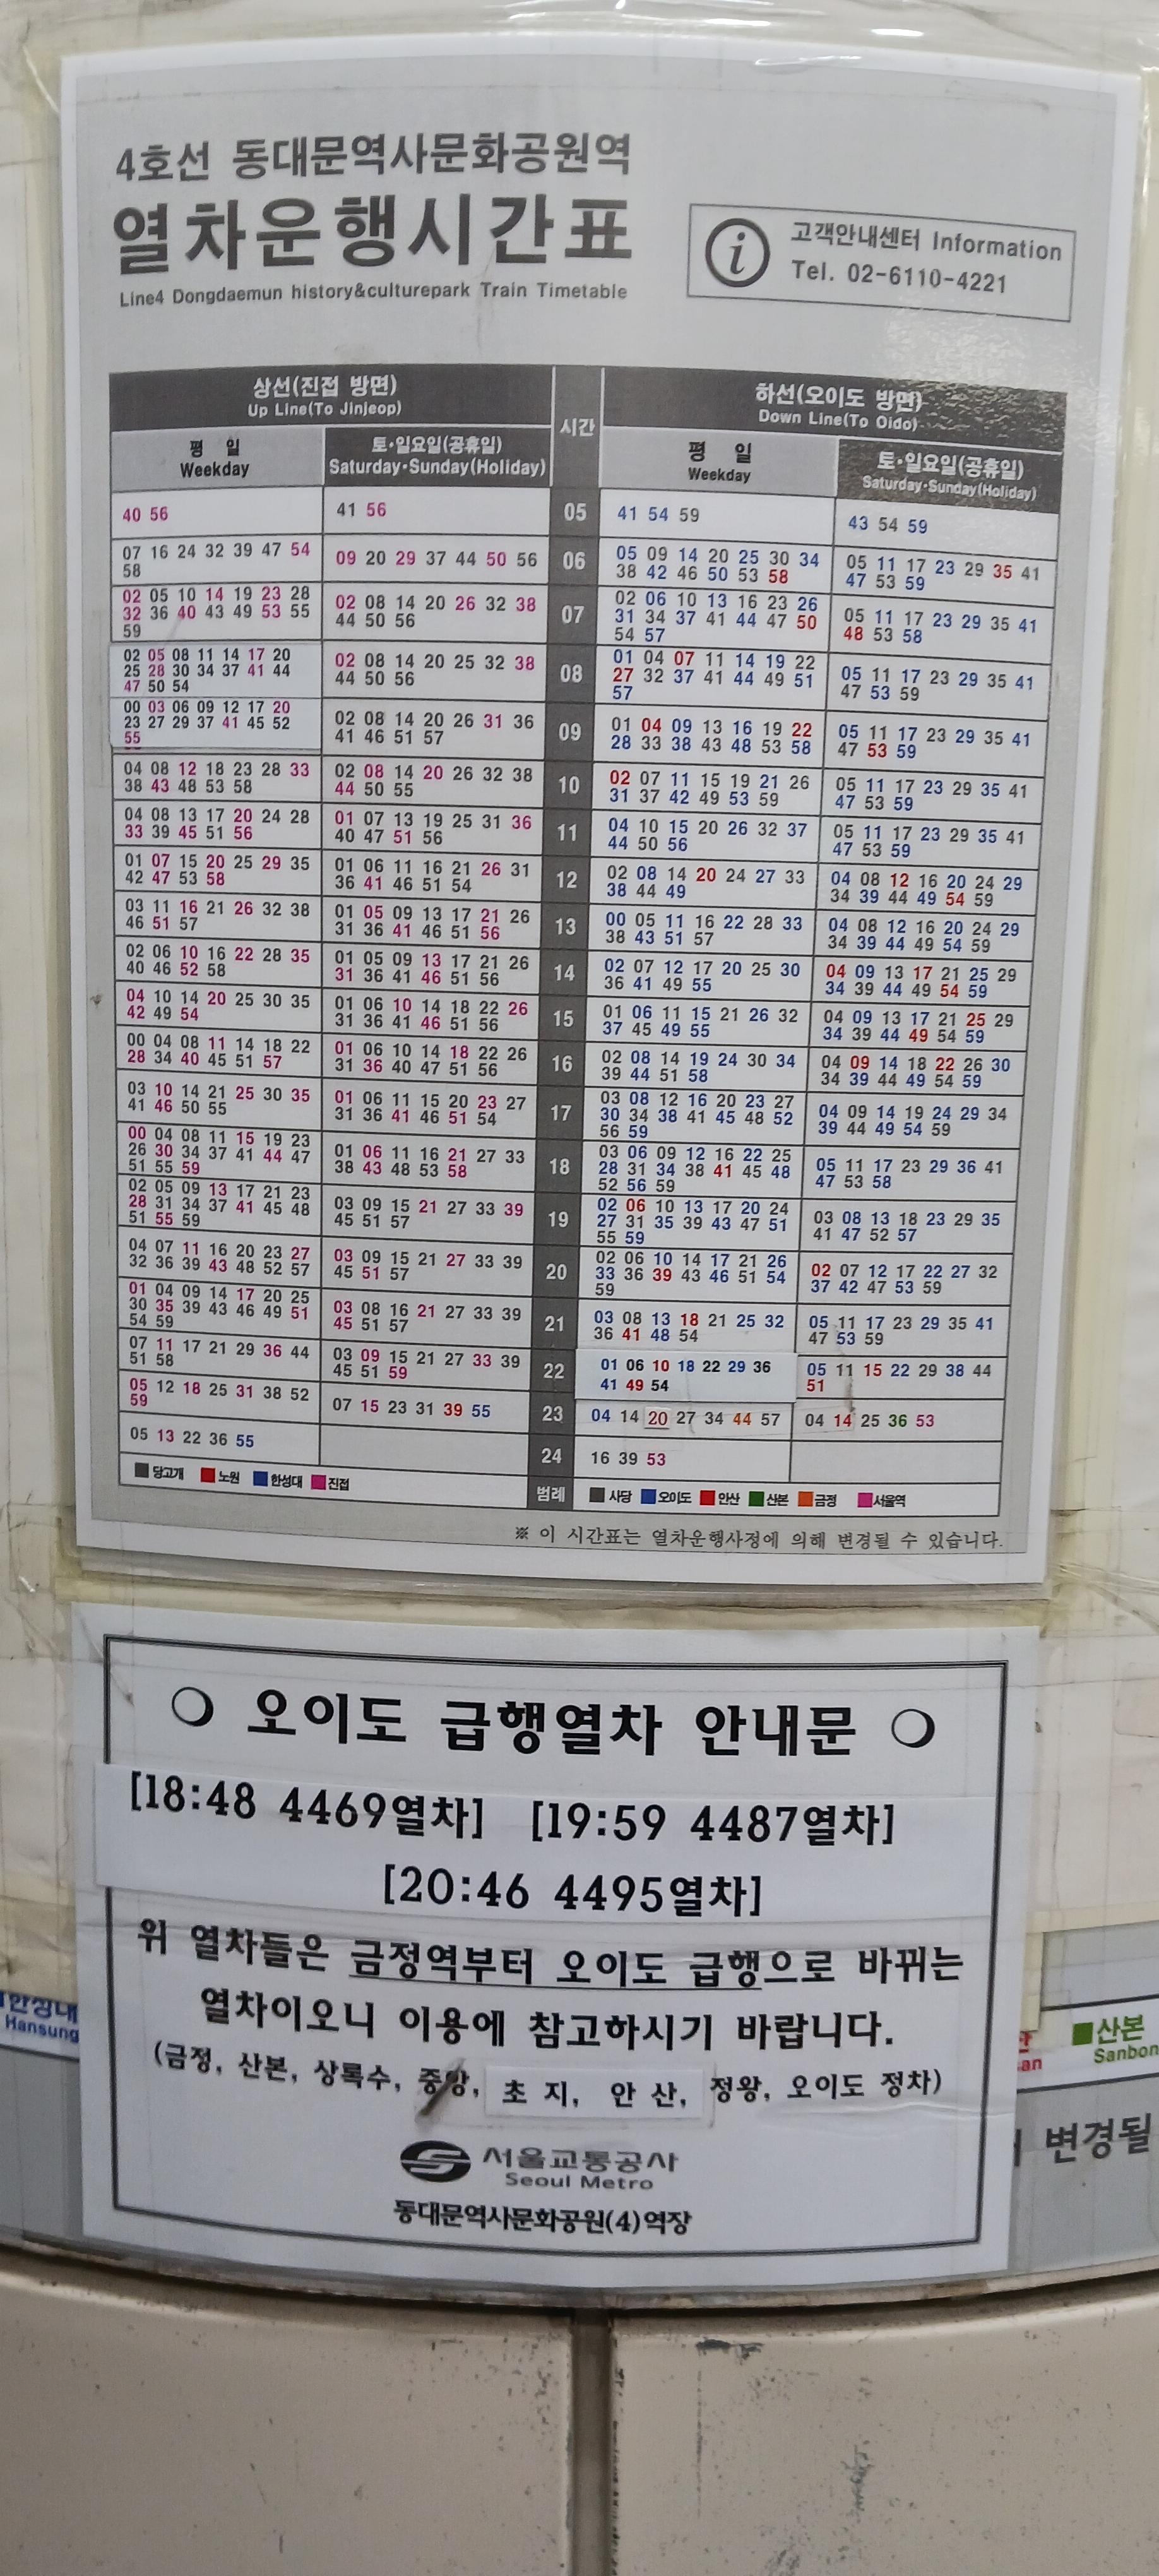 4호선 동대문역사문화공원역
열차운행시간표
Line4 Dongdaemun history&culturepark Train Timetable
고객안내센터 Information
Tel. 02-6110-4221
상선(진접 방면)
Up Line(To Jinjeop)
시간
하선(오이도 방면)
Down Line(To Oido)
평 일
Weekday
토·일요일(공휴일)
Saturday·Sunday(Holiday)
평 일
Weekday
토·일요일(공휴일)
Saturday·Sunday(Holiday)
40 56
41 56
05
41 54 59
43 54 59
07 16 24 32 39 47 54
58
09 20 29 37 44 50 56
06
05 09 14 20 25 30 34
38 42 46 50 53 58
05 11 17 23 29 35 41
47 53 59
02 05 10 14 19 23 28
32 36 40 43 49 53 55
59
02 08 14 20 26 32 38
44 50 56
07
02 06 10 13 16 23 26
31 34 37 41 44 47 50
54 57
05 11 17 23 29 35 41
48 53 58
02 05 08 11 14 17 20
25 28 30 34 37 41 44
47 50 54
02 08 14 20 25 32 38
44 50 56
08
01 04 07 11 14 19 22
27 32 37 41 44 49 51
57
05 11 17 23 29 35 41
47 53 59
00 03 06 09 12 17 20
23 27 29 37 41 45 52
55
02 08 14 20 26 31 36
41 46 51 57
09
01 04 09 13 16 19 22
28 33 38 43 48 53 58
05 11 17 23 29 35 41
47 53 59
04 08 12 18 23 28 33
38 43 48 53 58
02 08 14 20 26 32 38
44 50 55
10
02 07 11 15 19 21 26
31 37 42 49 53 59
05 11 17 23 29 35 41
47 53 59
04 08 13 17 20 24 28
33 39 45 51 56
01 07 13 19 25 31 36
40 47 51 56
11
04 10 15 20 26 32 37
44 50 56
05 11 17 23 29 35 41
47 53 59
01 07 15 20 25 29 35
42 47 53 58
01 06 11 16 21 26 31
36 41 46 51 54
12
02 08 14 20 24 27 33
38 44 49
04 08 12 16 20 24 29
34 39 44 49 54 59
03 11 16 21 26 32 38
46 51 57
01 05 09 13 17 21 26
31 36 41 46 51 56
13
00 05 11 16 22 28 33
38 43 51 57
04 08 12 16 20 24 29
34 39 44 49 54 59
02 06 10 16 22 28 35
40 46 52 58
01 05 09 13 17 21 26
31 36 41 46 51 56
14
02 07 12 17 20 25 30
36 41 49 55
04 09 13 17 21 25 29
34 39 44 49 54 59
04 10 14 20 25 30 35
42 49 54
01 06 10 14 18 22 26
31 36 41 46 51 56
15
01 06 11 15 21 26 32
37 45 49 55
04 09 13 17 21 25 29
34 39 44 49 54 59
00 04 08 11 14 18 22
28 34 40 45 51 57
01 06 10 14 18 22 26
31 36 40 47 51 56
16
02 08 14 19 24 30 34
39 44 51 58
04 09 14 18 22 26 30
34 39 44 49 54 59
03 10 14 21 25 30 35
41 46 50 55
01 06 11 15 20 23 27
31 36 41 46 51 54
17
03 08 12 16 20 23 27
30 34 38 41 45 48 52
56 59
04 09 14 19 24 29 34
39 44 49 54 59
00 04 08 11 15 19 23
26 30 34 37 41 44 47
51 55 59
01 06 11 16 21 27 33
38 43 48 53 58
18
03 06 09 12 16 22 25
28 31 34 38 41 45 48
52 56 59
05 11 17 23 29 36 41
47 53 58
02 05 09 13 17 21 23
28 31 34 37 41 45 48
51 55 59
03 09 15 21 27 33 39
45 51 57
19
02 06 10 13 17 20 24
27 31 35 39 43 47 51
55 59
03 08 13 18 23 29 35
41 47 52 57
04 07 11 16 20 23 27
32 36 39 43 48 52 57
03 09 15 21 27 33 39
45 51 57
20
02 06 10 14 17 21 26
33 36 39 43 46 51 54
59
02 07 12 17 22 27 32
37 42 47 53 59
01 04 09 14 17 20 25
30 35 39 43 46 49 51
54 59
03 08 16 21 27 33 39
45 51 57
21
03 08 13 18 21 25 32
36 41 48 54
05 11 17 23 29 35 41
47 53 59
07 11 17 21 29 36 44
51 58
03 09 15 21 27 33 39
45 51 59
22
01 06 10 18 22 29 36
41 49 54
05 11 15 22 29 38 44
51
05 12 18 25 31 38 52
59
07 15 23 31 39 55
23
04 14 20 27 34 44 57
04 14 25 36 53
05 13 22 36 55
24
16 39 53
당고개 노원 한성대 진접
범례
사당 오이도 안산 산본 금정 서울역
※ 이 시간표는 열차운행사정에 의해 변경될 수 있습니다.
○ 오이도 급행열차 안내문 ○
[18:48 4469열차] [19:59 4487열차]
[20:46 4495열차]
위 열차들은 금정역부터 오이도 급행으로 바뀌는
열차이오니 이용에 참고하시기 바랍니다.
(금정, 산본, 상록수, 중앙, 초 지, 안 산, 정왕, 오이도 정차)
서울교통공사
Seoul Metro
동대문역사문화공원(4)역장
한성대
Hansung
산본
Sanbon
변경될